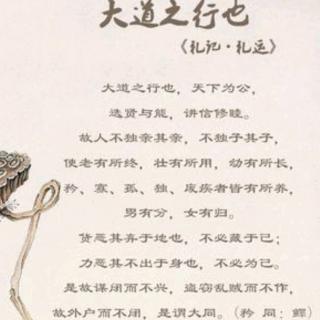 大道之行也
《礼记·礼运》
大道之行也，天下为公，
选贤与能，讲信修睦。
故人不独亲其亲，不独子其子，
使老有所终，壮有所用，幼有所长，
矜、寡、孤、独、废疾者皆有所养，
男有分，女有归。
货恶其弃于地也，不必藏于己；
力恶其不出于身也，不必为己。
是故谋闭而不兴，盗窃乱贼而不作，
故外户而不闭，是谓大同。（矜 同：鳏）